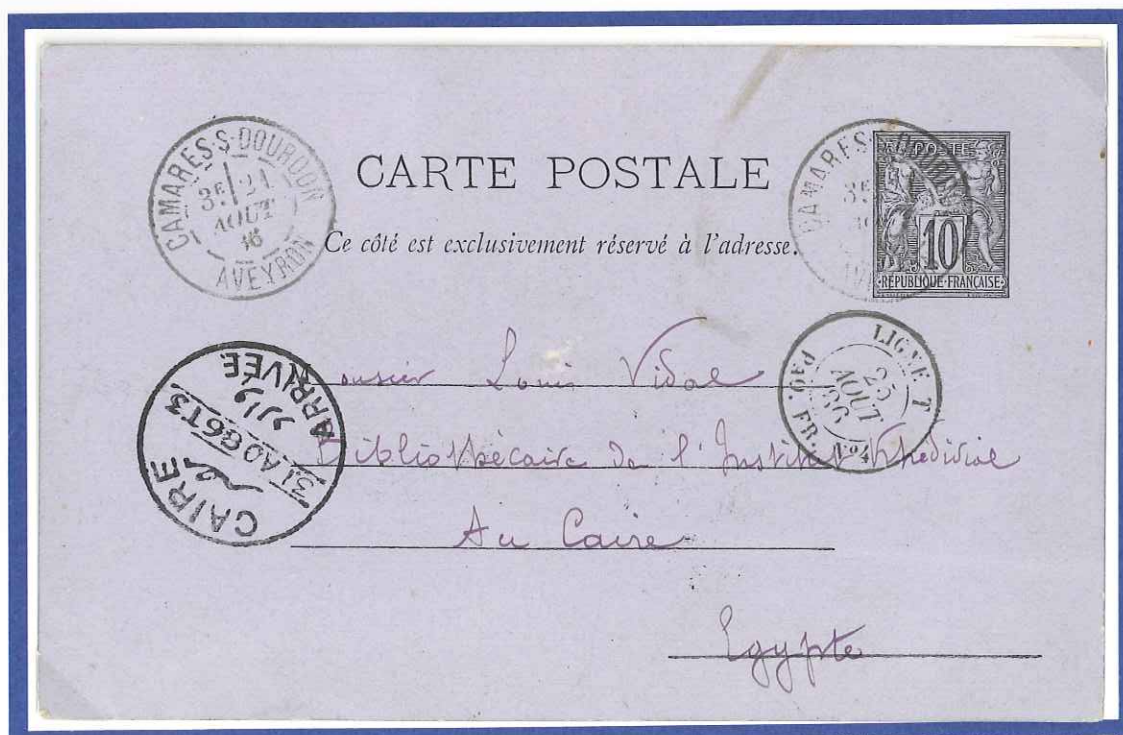 CAMARES-S-DOURDON
3E 21
AOUT
86
AVEYRON
CARTE POSTALE
Ce côté est exclusivement réservé à l'adresse.
CAMARES-S-DOURDON
3E
POSTE
10
RÉPUBLIQUE·FRANÇAISE
LIGNE T
25
AOUT
86
PAQ. FR. Nº4
CAIRE
31 AO 86 T3
ARRIVÉE
Monsieur Louis Vidal
Bibliothécaire de l'Institut Khédivial
Au Caire
Egypte